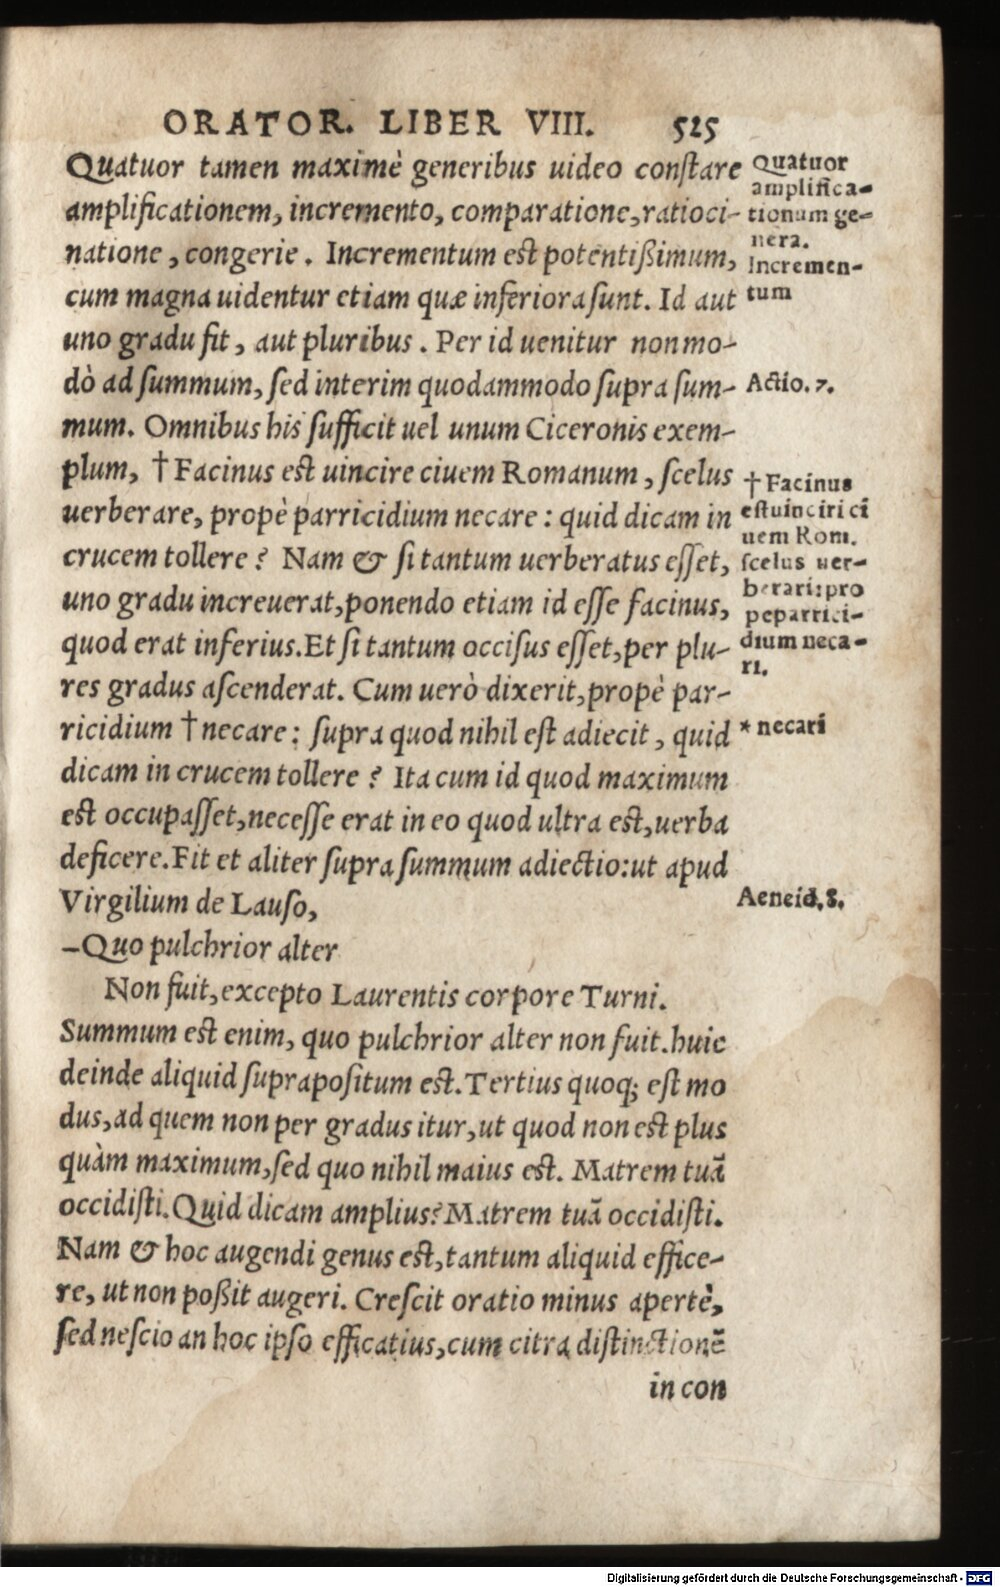 ORATOR. LIBER VIII. 525
Quatuor tamen maximè generibus uideo constare
amplificationem, incremento, comparatione, ratioci-
natione, congerie. Incrementum est potentißimum,
cum magna uidentur etiam quæ inferiora sunt. Id aut
uno gradu fit, aut pluribus. Per id uenitur non mo-
dò ad summum, sed interim quodammodo supra sum-
mum. Omnibus his sufficit uel unum Ciceronis exem-
plum, † Facinus est uincire ciuem Romanum, scelus
uerberare, propè parricidium necare: quid dicam in
crucem tollere? Nam & si tantum uerberatus esset,
uno gradu increuerat, ponendo etiam id esse facinus,
quod erat inferius. Et si tantum occisus esset, per plu-
res gradus ascenderat. Cum uerò dixerit, propè par-
ricidium † necare: supra quod nihil est adiecit, quid
dicam in crucem tollere? Ita cum id quod maximum
est occupasset, necesse erat in eo quod ultra est, uerba
deficere. Fit et aliter supra summum adiectio: ut apud
Virgilium de Lauso,
–Quo pulchrior alter
Non fuit, excepto Laurentis corpore Turni.
Summum est enim, quo pulchrior alter non fuit. huic
deinde aliquid suprapositum est. Tertius quoq; est mo
dus, ad quem non per gradus itur, ut quod non est plus
quàm maximum, sed quo nihil maius est. Matrem tuã
occidisti. Quid dicam amplius? Matrem tuã occidisti.
Nam & hoc augendi genus est, tantum aliquid effice-
re, ut non poßit augeri. Crescit oratio minus apertè,
sed nescio an hoc ipso efficatius, cum citra distinctionẽ
in con
Quatuor
amplifica-
tionum ge-
nera.
Incremen-
tum
Actio. 7.
† Facinus
est uinciri ci
uem Rom.
scelus uer-
berari: pro
pe parrici-
dium neca-
ri.
* necari
Aeneid. 8.
Digitalisierung gefördert durch die Deutsche Forschungsgemeinschaft - DFG